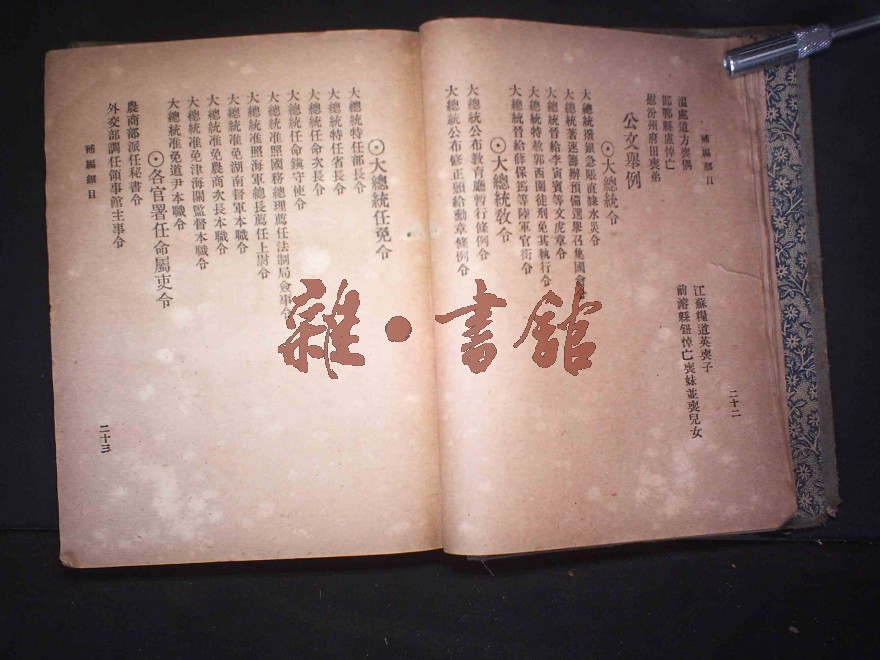 補編細目
二十二
溫處道方喪偶
邯鄲縣盧悼亡
慰汾州府田喪弟
江蘇糧道英喪子
前溶縣鈕悼亡喪妹並喪兒女
公文舉例
⊙大總統令
大總統撥銀急賑直隸水災令
大總統著速籌辦預備選舉召集國會令
大總統晉給李寅賓等文虎章令
大總統特赦郭西園徒刑免其執行令
大總統晉給薛保筠等陸軍官銜令
⊙大總統敎令
大總統公布教育廳暫行條例令
大總統公布修正頒給勳章條例令
⊙大總統任免令
大總統特任部長令
大總統特任省長令
大總統任命次長令
大總統任命鎮守使令
大總統准照國務總理薦任法制局僉事令
大總統准照海軍總長薦任上尉令
大總統准免湖南督軍本職令
大總統准免農商次長本職令
大總統准免津海關監督本職令
大總統准免道尹本職令
⊙各官署任命屬吏令
農商部派任秘書令
外交部調任領事館主事令
補編細目
二十三
雜•書館